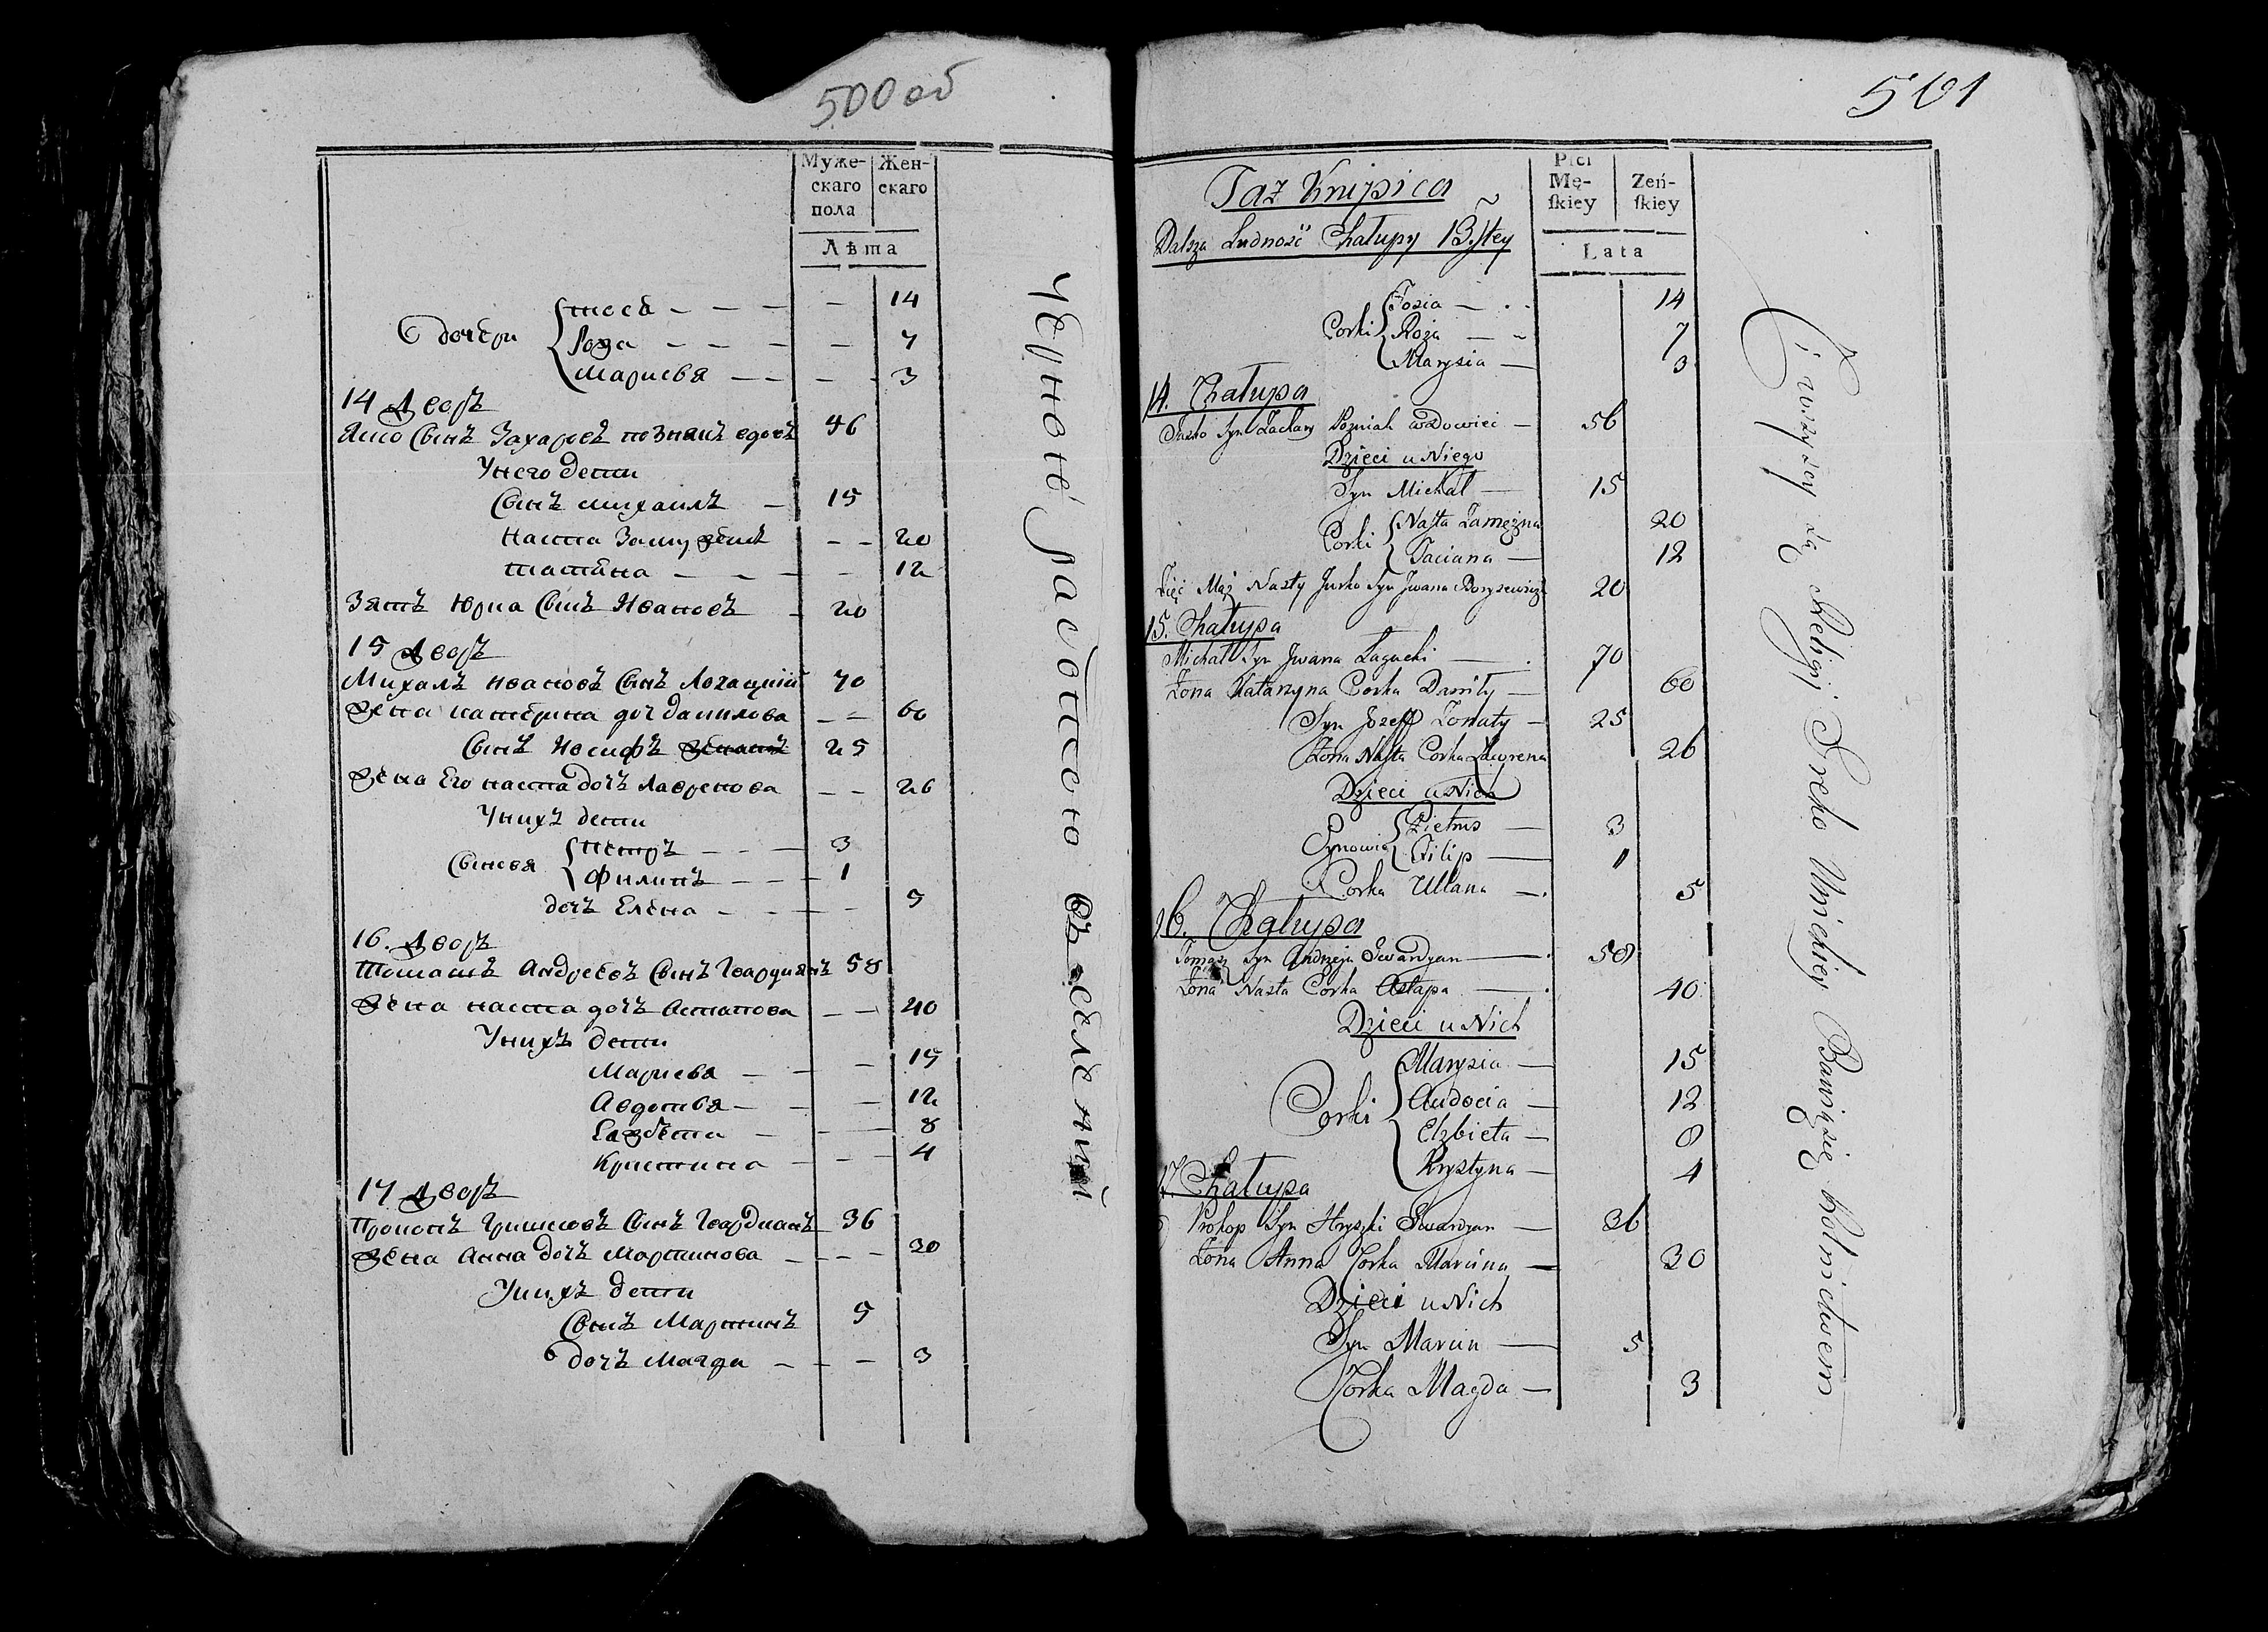 500 об
Муже-
скаго
пола
Жен-
скаго
Лѣта
теся - - - - 14
дочери Роза - - - - 7
Марися - - - 3
14 дворъ
Яско Сынъ Захаровъ познякъ вдовъ 46
Унего дети
Сынъ михаилъ - 15
наста Замужемъ - - 20
татяна - - - - 12
Зять Юрка Сынъ Ивановъ - 20
15 дворъ
Михалъ ивановъ Сынъ Логацкий 70
жена катерина доч данилова - - 60
Сынъ Иосифъ женатъ 25
жена Его наста дочъ лавренова - - 26
Унихъ дети
Сыновя петръ - - - 3
Филипъ - - - 1
дочъ Елена - - - - 5
16. дворъ
Томашъ Андреевъ Сынъ Гвардиянъ 58
жена наста дочъ Астапова - - 40
Унихъ дети
Марися - - - 15
Авдотя - - - 12
Елзбета - - - 8
Кристина - - - 4
17 дворъ
прокопъ Гришковъ Сынъ Гвардианъ 36
жена Анна дочъ Мартинова - - - 30
Унихъ дети
Сынъ Мартинъ 5
дочъ Магда - - - 3
черною работою въ селении
501
Taz Knipica
Dalsza Ludność Chałupy 13.stey
Płci
Mę-
ſkiey
Zeń-
ſkiey
Lata
Tosia - - - 14
Corki Roza - - 7
Marysia - 3
14. Chałupa
Jasko Syn Zachary Pozniak wdowiec - 56
Dzieci u Niego
Syn Michał - 15
Corki Nasta Zamężna 20
Taciana - 12
Zięć Mąż Nasty Jurko Syn Jwana Borysewicz 20
15. Chałupa
Michał Syn Jwana Łagucki - 70
Zona Katarzyna Corka Daniły - 60
Syn Jozeff Zonaty - 25
Zona Nasta Corka Ławrena 26
Dzieci u Nich
Synowie Pietruś - 3
Filip - 1
Corka Ullana - 5
16. Chałupa
Tomasz Syn Andrzeja Gwardyan - 58
Zona Nasta Corka Astapa - 40
Dzieci u Nich
Marysia - 15
Corki Audocia - 12
Elzbieta - 8
Krystyna - 4
17. Chałupa
Prokop Syn Hryszki Gwardyan - 36
Zona Anna Corka Marcina - 30
Dzieci u Nich
Syn Marcin - 5
Corka Magda - 3
i wszyscy są Religij Greko Unickiey Bawią się Rolnictwem